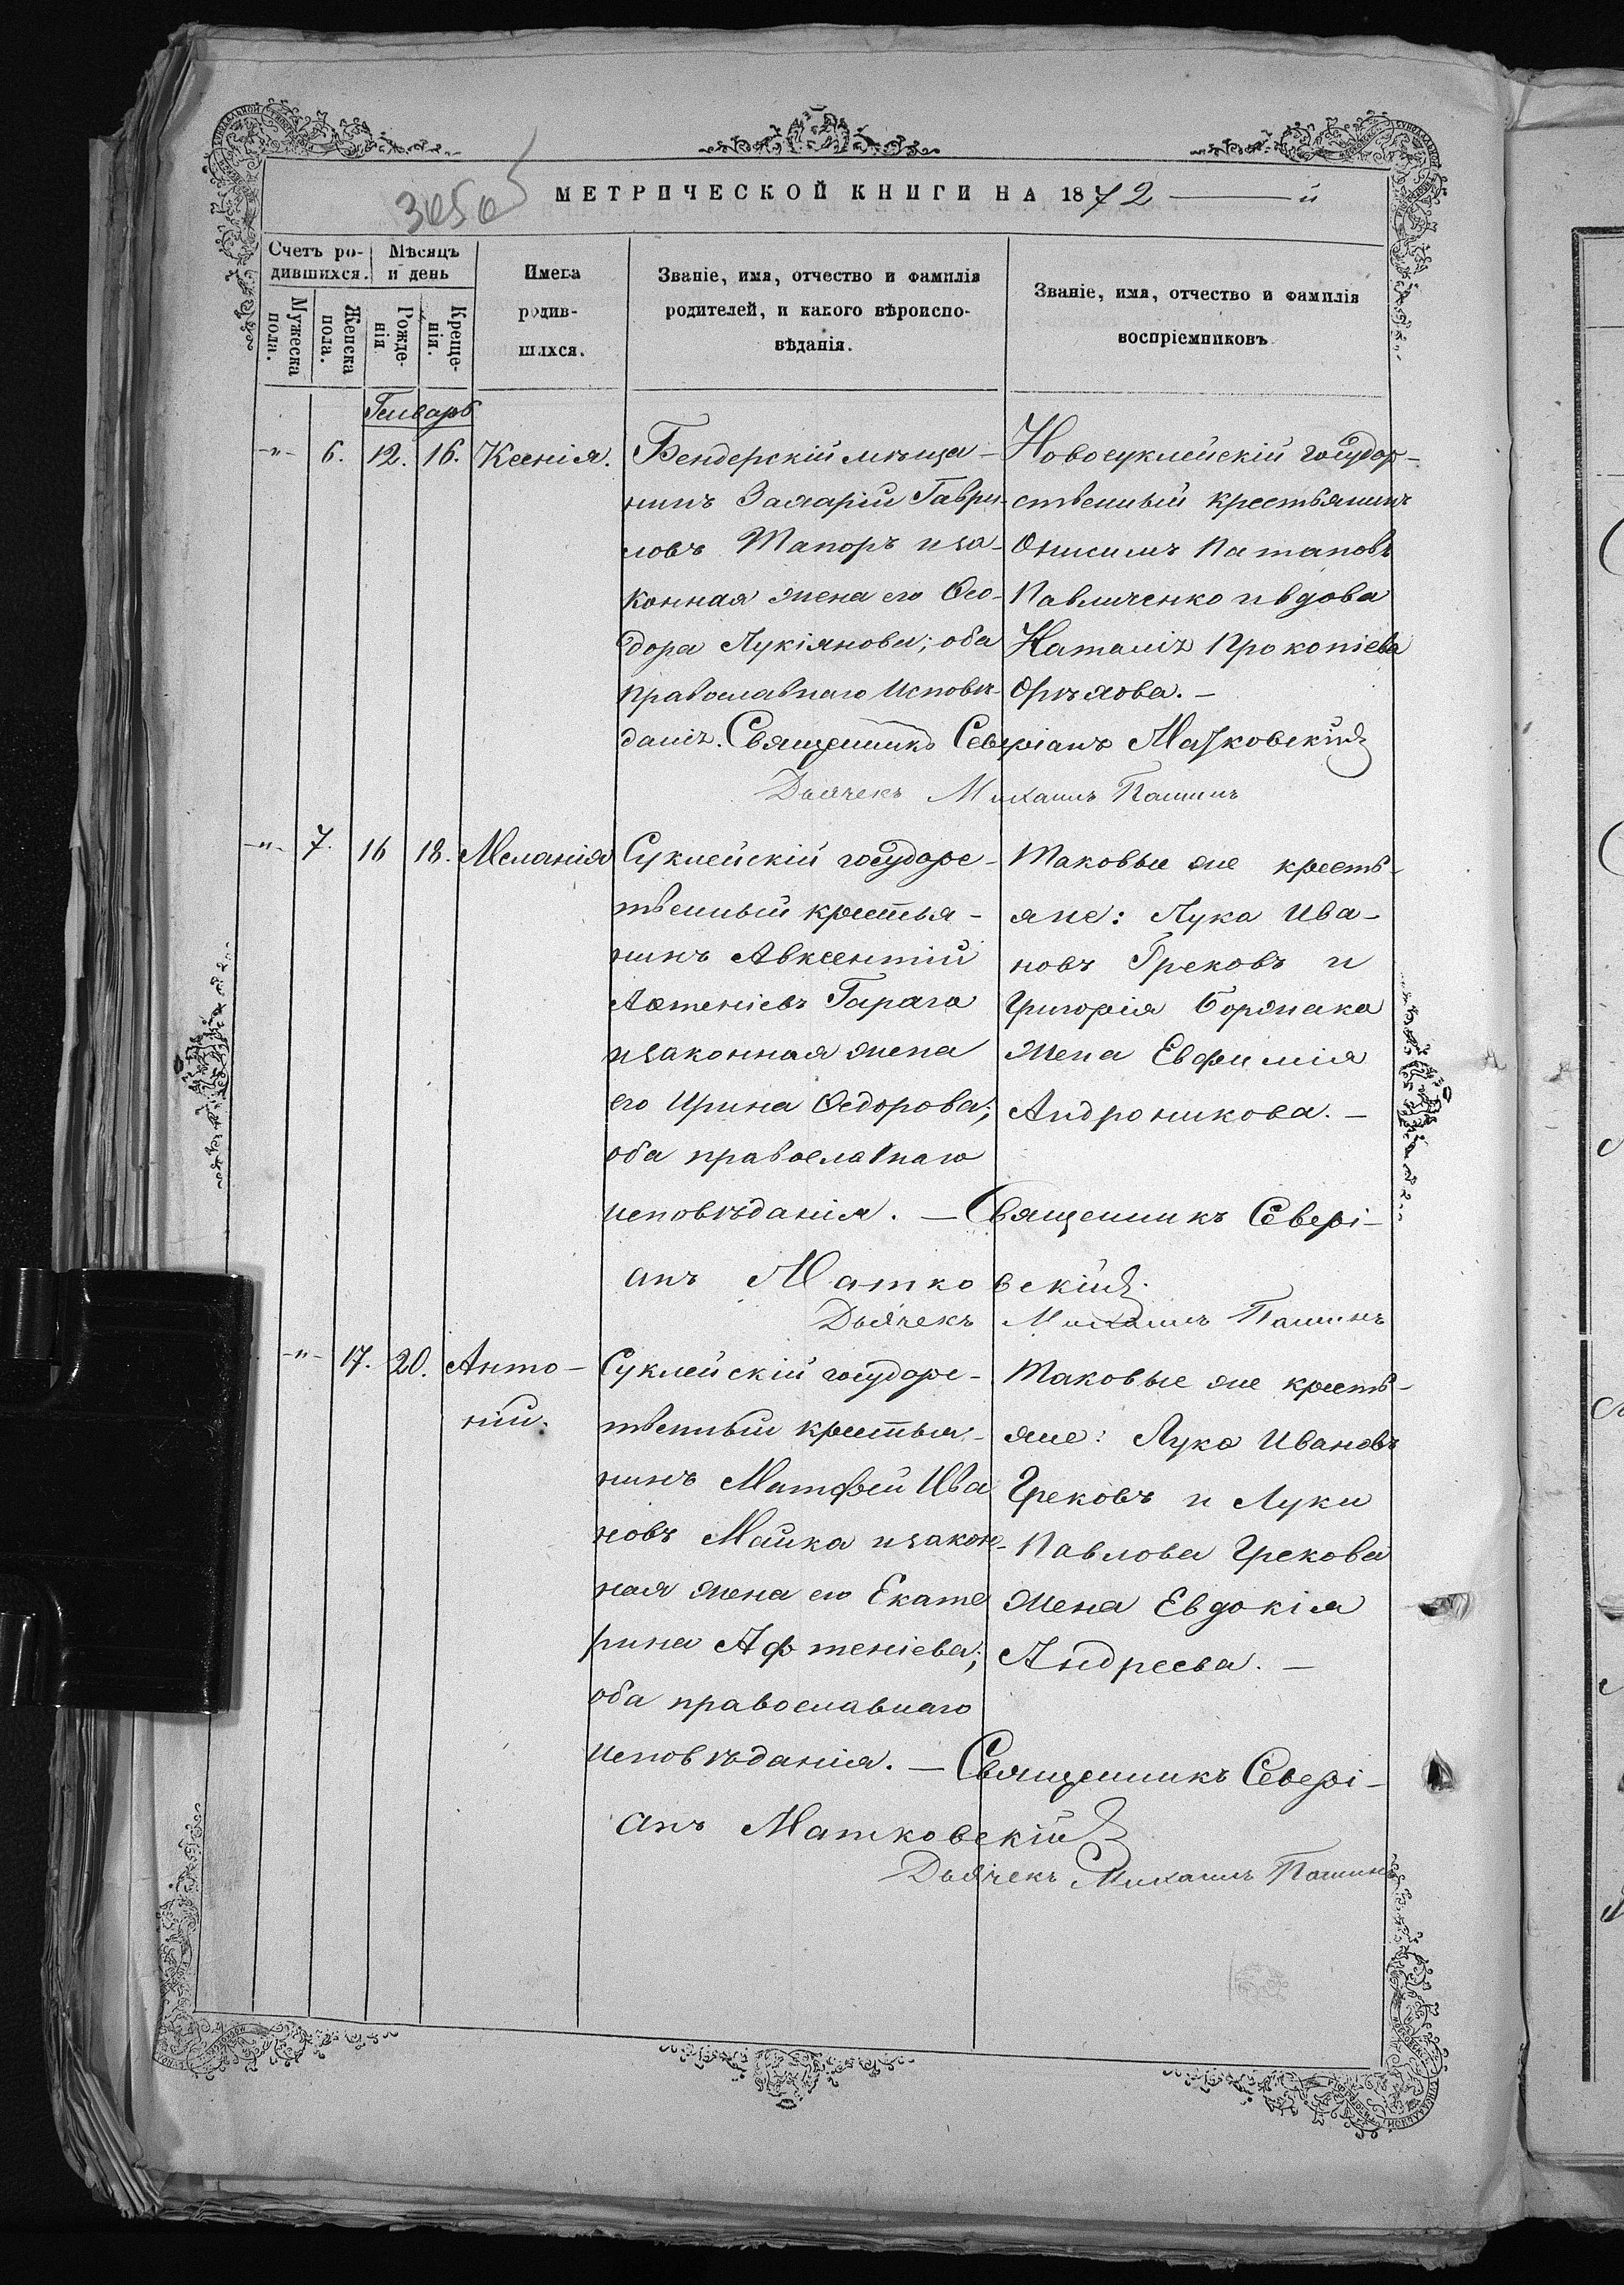 МЕТРИЧЕСКОЙ КНИГИ НА 1872 й
Счетъ ро-
дившихся.
Мѣсяцъ
и день
Имена
родив-
шихся.
Званіе, имя, отчество и фамилія
родителей, и какого вѣроиспо-
вѣданія.
Званіе, имя, отчество и фамилія
воспріемниковъ
Мужеска
пола.
Женска
пола.
Рожде-
нія
Креще-
нія.
Генварь
-"- 6. 12. 16. Ксенія.
Бендерскій мѣща-
нинъ Захарій Гаври-
ловъ Тапоръ и за-
конная жена его Ѳео-
дора Лукіянова; оба
православнаго исповѣ-
данія. Священникъ Северіанъ Матковскій
Дьячекъ Михаилъ Пашинъ
Новосуклейскій государ-
ственный крестьянинъ
Онисимъ Патаповъ
Павличенко и вдова
Наталія Прокопіева
Орѣхова. -
-"- 7. 16 18. Меланія
Суклейскій государс-
твенный крестья-
нинъ Авксентій
Автеніевъ Гарага
и законная жена
его Ирина Ѳедорова;
оба православнаго
исповѣданія. - Священникъ Севері-
анъ Матковскій.
Дьячекъ Михаилъ Пашинъ
Таковые же кресть-
яне: Лука Ива-
новъ Грековъ и
Григорія Боржака
жена Евфимія
Андроникова. -
-"- 17. 20. Анто-
ній.
Суклейскій государс-
твенный крестья-
нинъ Матфей Ива
новъ Майка и закон-
ная жена его Екате
рина Афтеніева;
оба православнаго
исповѣданія. - Священникъ Севері-
анъ Матковскій
Дьячекъ Михаилъ Пашинъ
Таковые же кресть-
яне: Лука Ивановъ
Грековъ и Луки
Павлова Грекова
жена Евдокія
Андреева. -